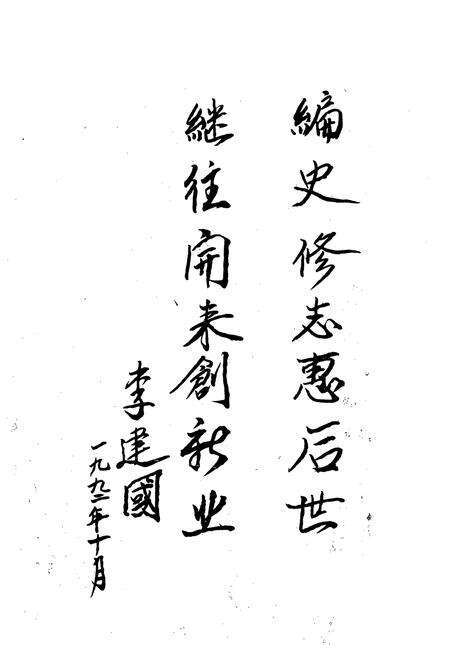 編史修志惠后世
继往開来創新业
李建國
一九九二年十月